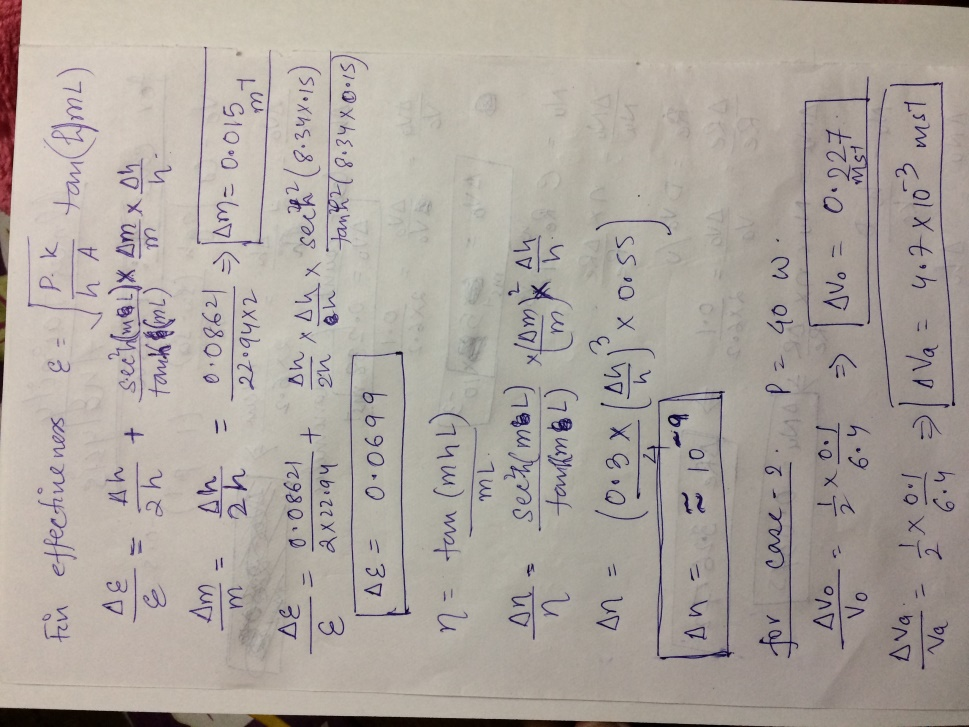 Fin effectiveness ε = √(P.k / h A) tan(h)mL)
Δε/ε = Δh/2h + sec²h(mL)/tanh(mL) × Δm/m × Δh/h.
Δm/m = Δh/2h = 0.08621/22.94×2 ⇒ Δm = 0.015 m⁻¹
Δε/ε = 0.08621/2×22.94 + Δh/2h × Δh/h × sech²(8.34×.15)/tanh²(8.34×0.15)
Δε = 0.0699
η = tan(mhL)/mL
Δη/η = sec²h(mL)/tanh(mL) × (Δm/m)² × Δh/h
Δη = (0.3/4 × (Δh/h)³ × 0.55)
Δη = ≈ 10⁻⁹
for case-2. P = 40 W.
ΔVo/Vo = 1/2 × 0.1/6.4 ⇒ ΔVo = 0.227 ms⁻¹
ΔVa/Va = 1/2 × 0.1/6.4 ⇒ ΔVa = 4.7 × 10⁻³ ms⁻¹